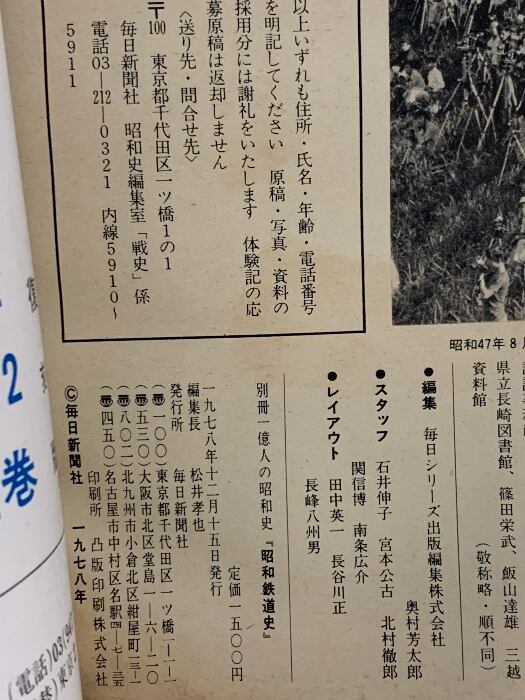 以上いずれも住所・氏名・年齢・電話番号
を明記してください　原稿・写真・資料の
採用分には謝礼をいたします　体験記の応
募原稿は返却しません
〈送り先・問合せ先〉
〒100　東京都千代田区一ツ橋1の1
毎日新聞社　昭和史編集室「戦史」係
電話03―212―0321　内線5910〜
5911
昭和47年8月
県立長崎図書館、篠田栄武、飯山達雄　三越
資料館
（敬称略・順不同）
●編集　毎日シリーズ出版編集株式会社
奥村芳太郎
●スタッフ　石井伸子　宮本公古　北村徹郎
関信博　南条広介
●レイアウト　田中英一　長谷川正
長峰八州男
別冊一億人の昭和史『昭和鉄道史』
定価一五〇〇円
一九七八年十二月十五日発行
編集長　松井孝也
発行所　毎日新聞社
（〒一〇〇）東京都千代田区一ツ橋一―一―一
（〒五三〇）大阪市北区堂島一―六―二〇
（〒八〇二）北九州市小倉北区紺屋町一三―一
（〒四五〇）名古屋市中村区名駅四―七―三五
印刷所　凸版印刷株式会社
©毎日新聞社　一九七八年
2
巻
（電話）03